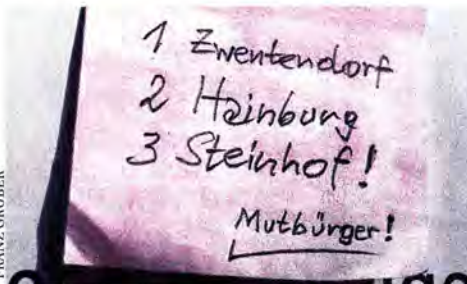 1 Zwentendorf
2 Hainburg
3 Steinhof!
Mutbürger!